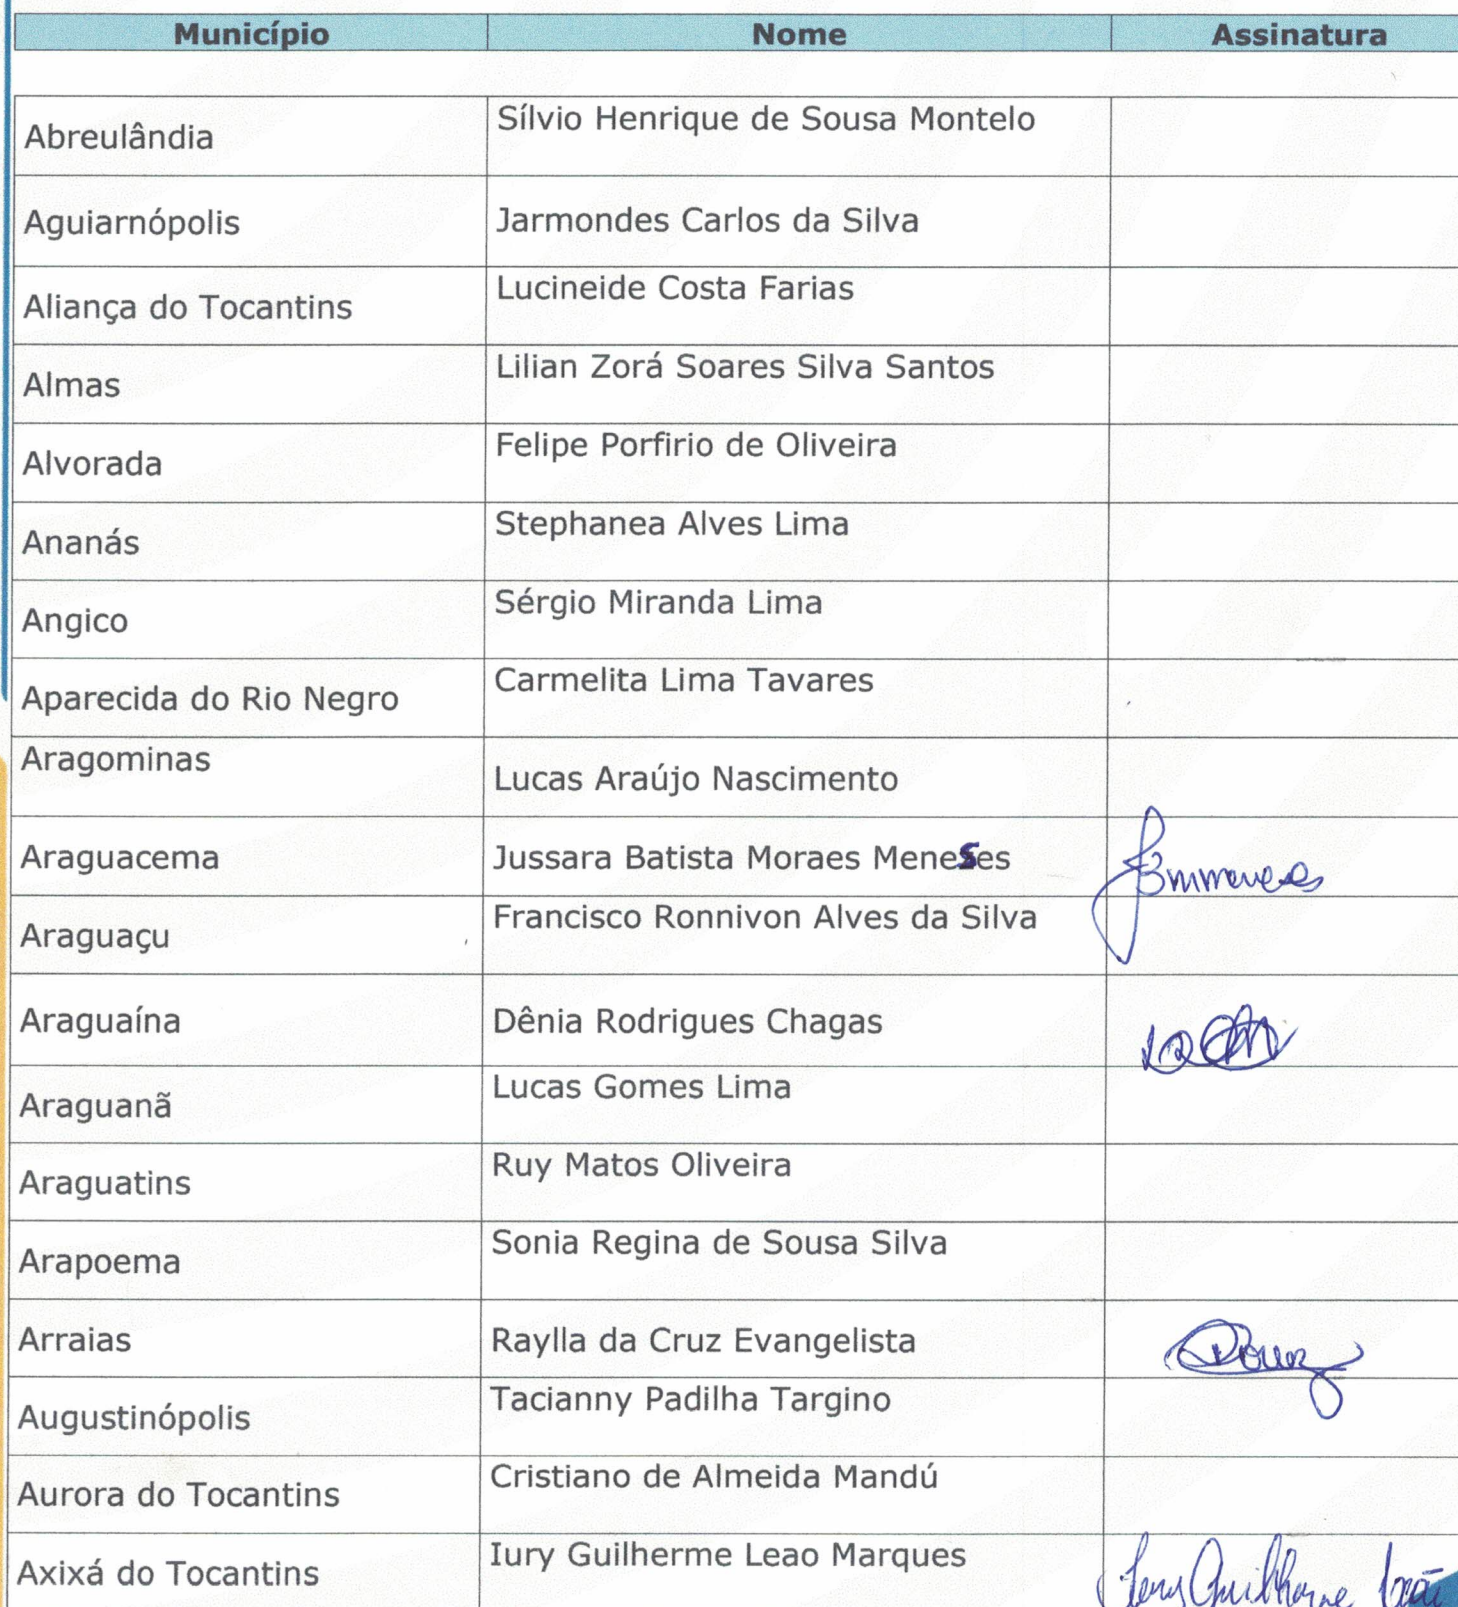 Município Nome Assinatura
Abreulândia Sílvio Henrique de Sousa Montelo
Aguiarnópolis Jarmondes Carlos da Silva
Aliança do Tocantins Lucineide Costa Farias
Almas Lilian Zorá Soares Silva Santos
Alvorada Felipe Porfirio de Oliveira
Ananás Stephanea Alves Lima
Angico Sérgio Miranda Lima
Aparecida do Rio Negro Carmelita Lima Tavares
Aragominas Lucas Araújo Nascimento
Araguacema Jussara Batista Moraes Meneses
Araguaçu Francisco Ronnivon Alves da Silva
Araguaína Dênia Rodrigues Chagas
Araguanã Lucas Gomes Lima
Araguatins Ruy Matos Oliveira
Arapoema Sonia Regina de Sousa Silva
Arraias Raylla da Cruz Evangelista
Augustinópolis Tacianny Padilha Targino
Aurora do Tocantins Cristiano de Almeida Mandú
Axixá do Tocantins Iury Guilherme Leao Marques Iury Guilherme Leão